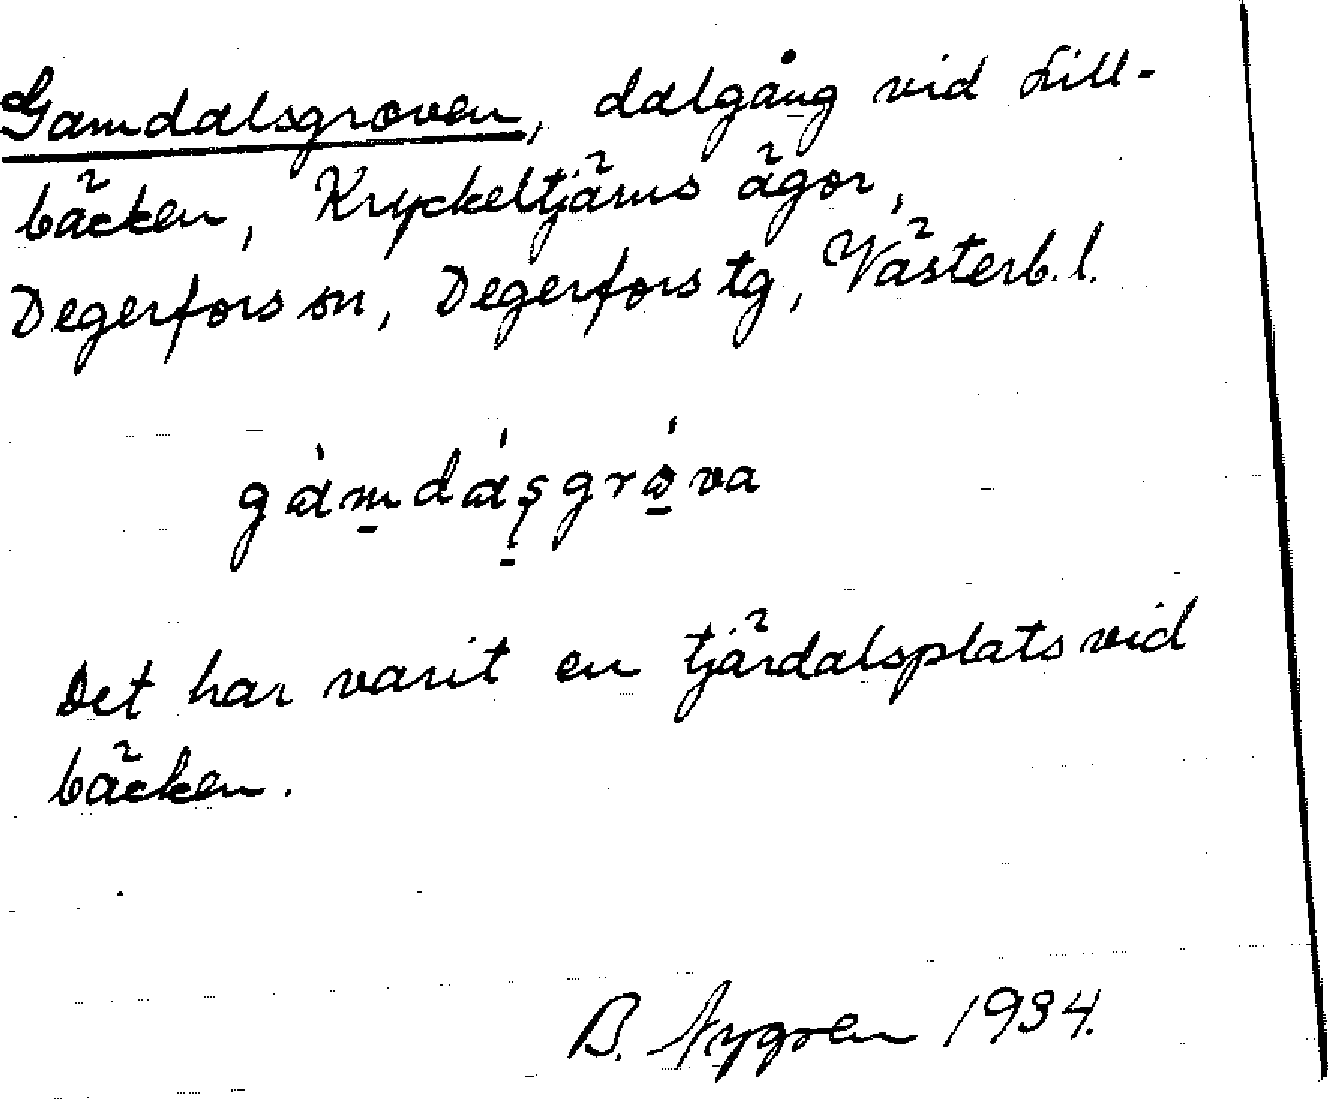 Gamdalsgroven, dalgång vid Lill-
bäcken, Kryckeltjärns ägor,
Degerfors sn, Degerfors tg, Västerb. l.
gámdásgróva
Det har varit en tjärdalsplats vid
bäcken.
B. Nygren 1934.